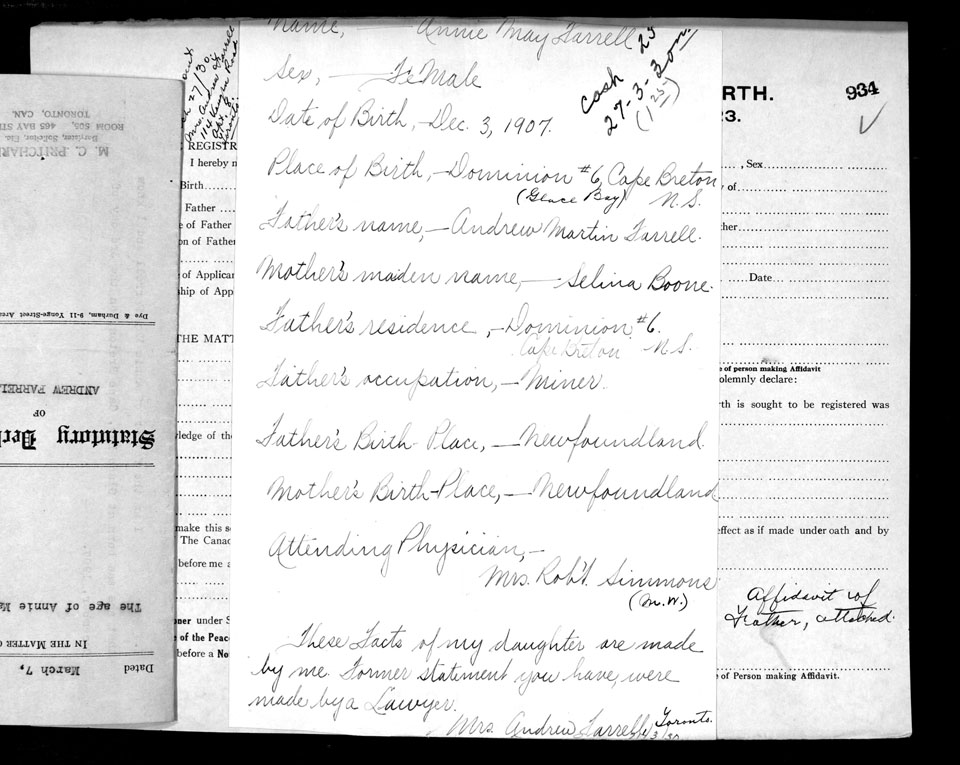 Name, - Annie May Farrell
Sex, - FeMale
Date of Birth, - Dec. 3, 1907.
Place of Birth, - Dominion #6, Cape Breton
(Glace Bay) N.S.
Father's name, - Andrew Martin Farrell.
Mother's maiden name, - Selina Boone.
Father's residence, - Dominion #6.
Cape Breton N.S.
Father's occupation, - Miner.
Father's Birth-Place, - Newfoundland.
Mother's Birth-Place, - Newfoundland
Attending Physician, -
Mrs. Rob't. Simmons
(M.W.)
These Facts of my daughter are made
by me. Former statement you have, were
made by a Lawyer.
Mrs. Andrew Farrell Toronto.
cash 25
27-3-30
(125)
Mrs. Andrew Farrell
114 Vaughan Road
Apt. 8.
Toronto.
REGISTR
I hereby
Birth
Father
of Father
on of Father
of Applican
ship of App
THE MATT
ledge of the
make this s
The Canad
before me a
oner under S
of the Peace
before a No
RTH.
23.
934
, Sex
of
ther
Date
e of person making Affidavit
olemnly declare:
rth is sought to be registered was
effect as if made under oath and by
Affidavit of
Father, attached.
e of Person making Affidavit.
Dated March 7,
IN THE MATTER O
The age of Annie Ma
Statutory Decl
OF
ANDREW FARREL
Dye & Durham, 9-11 Yonge-Street Arca
M. C. PRITCHAR
Barrister, Solicitor, Etc.
ROOM 505, 465 BAY ST
TORONTO, CAN.